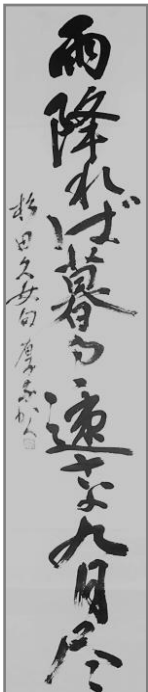 雨降れば暮るゝ速さよ九月尽
杉田久女句